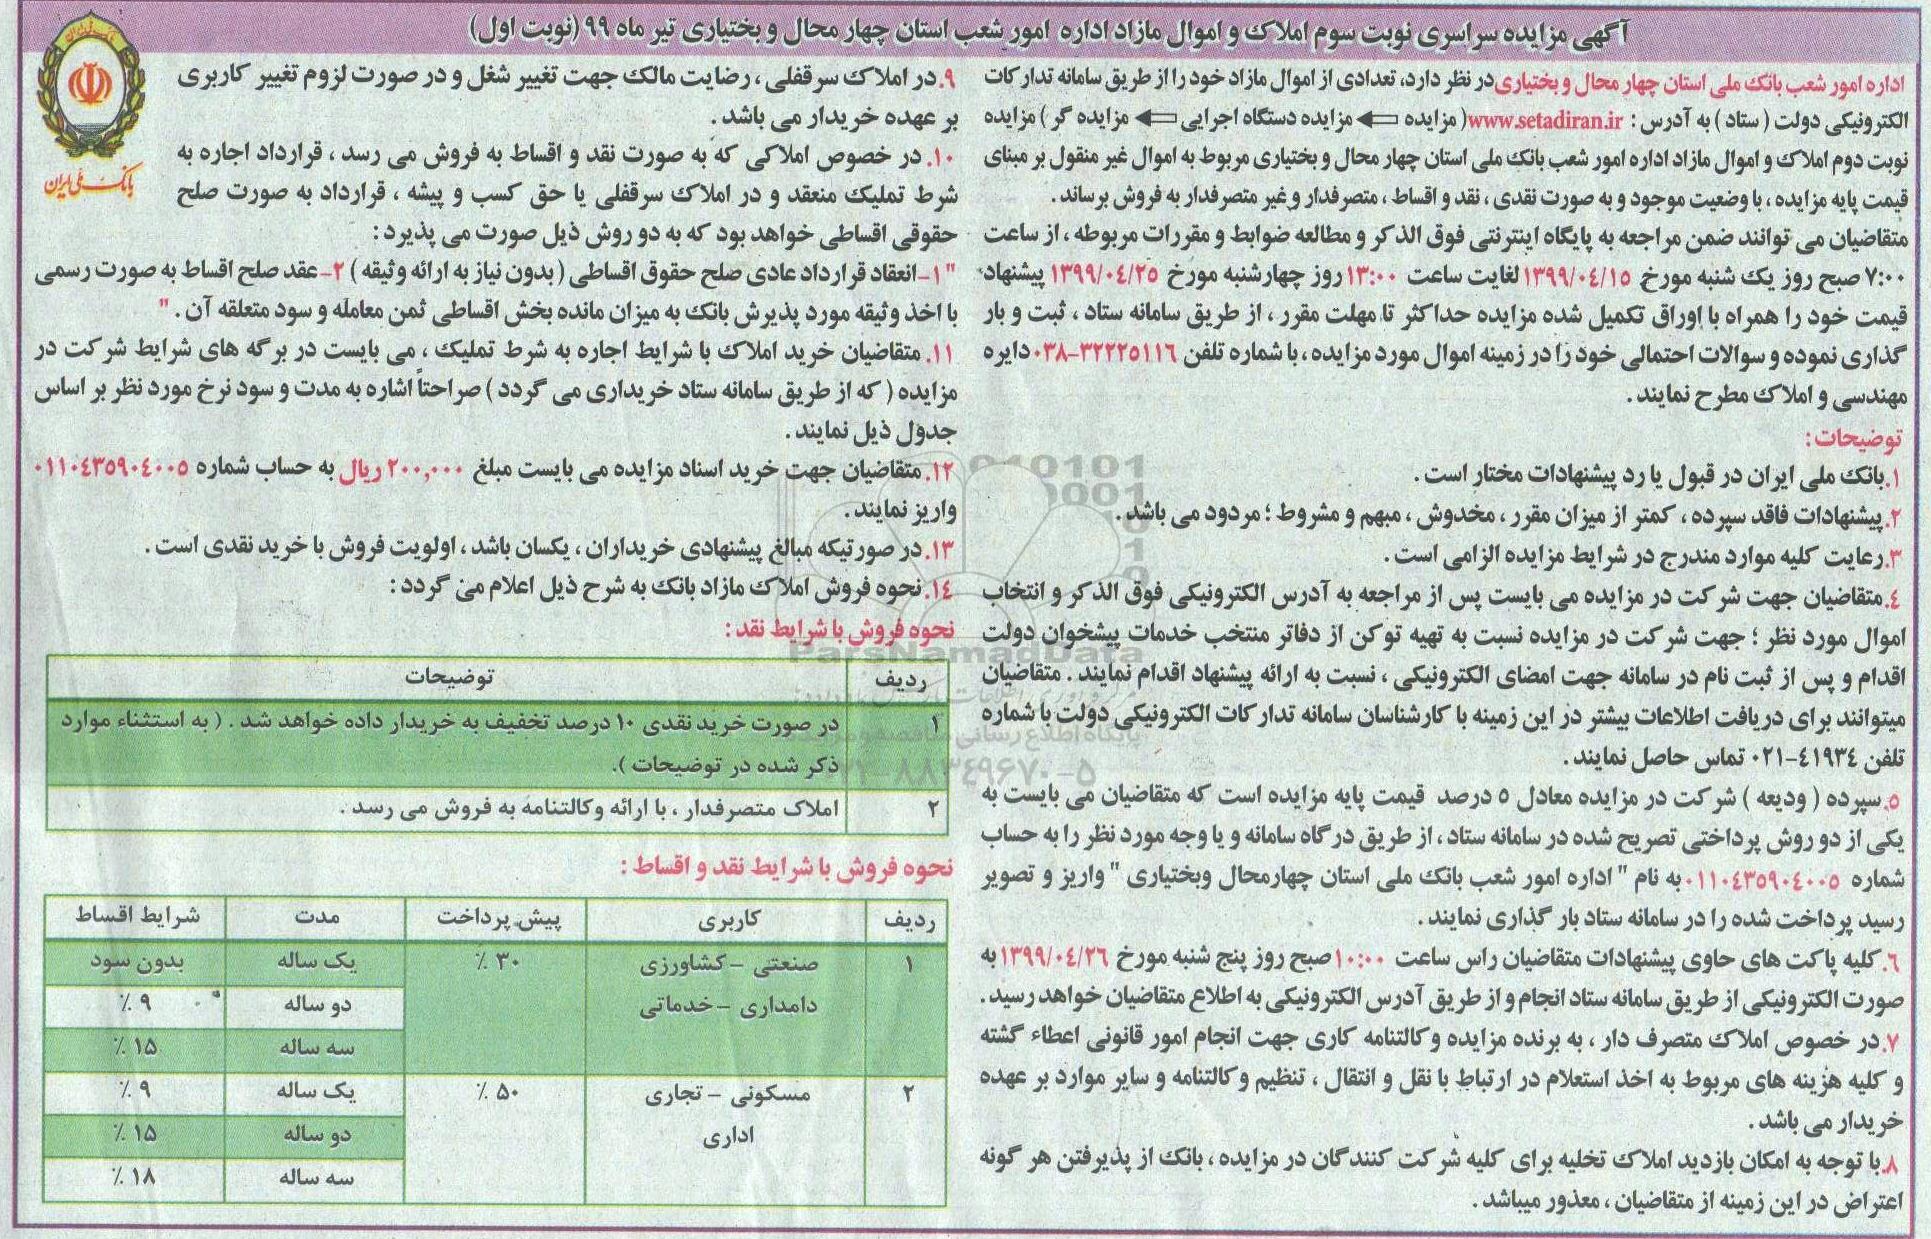 آگهی مزایده سراسری نوبت سوم املاک و اموال مازاد اداره امور شعب استان چهار محال و بختیاری تیر ماه ۹۹ (نوبت اول)
اداره امور شعب بانک ملی استان چهار محال و بختیاری در نظر دارد، تعدادی از اموال مازاد خود را از طریق سامانه تدارکات
الکترونیکی دولت ( ستاد ) به آدرس : www.setadiran.ir( مزایده ⇐ مزایده دستگاه اجرایی ⇐ مزایده گر ) مزایده
نوبت دوم املاک و اموال مازاد اداره امور شعب بانک ملی استان چهار محال و بختیاری مربوط به اموال غیر منقول بر مبنای
قیمت پایه مزایده ، با وضعیت موجود و به صورت نقدی ، نقد و اقساط ، متصرفدار و غیر متصرفدار به فروش برساند .
متقاضیان می توانند ضمن مراجعه به پایگاه اینترنتی فوق الذکر و مطالعه ضوابط و مقررات مربوطه ، از ساعت
۷:۰۰ صبح روز یک شنبه مورخ ۱۳۹۹/۰۴/۱۵ لغایت ساعت ۱۳:۰۰ روز چهارشنبه مورخ ۱۳۹۹/۰۴/۲۵ پیشنهاد
قیمت خود را همراه با اوراق تکمیل شده مزایده حداکثر تا مهلت مقرر ، از طریق سامانه ستاد ، ثبت و بار
گذاری نموده و سوالات احتمالی خود را در زمینه اموال مورد مزایده ، با شماره تلفن ۳۲۲۲۵۱۱۶-۰۳۸ دایره
مهندسی و املاک مطرح نمایند .
توضیحات :
۱. بانک ملی ایران در قبول یا رد پیشنهادات مختار است .
۲. پیشنهادات فاقد سپرده ، کمتر از میزان مقرر ، مخدوش ، مبهم و مشروط ؛ مردود می باشد .
۳. رعایت کلیه موارد مندرج در شرایط مزایده الزامی است .
۴. متقاضیان جهت شرکت در مزایده می بایست پس از مراجعه به آدرس الکترونیکی فوق الذکر و انتخاب
اموال مورد نظر ؛ جهت شرکت در مزایده نسبت به تهیه توکن از دفاتر منتخب خدمات پیشخوان دولت
اقدام و پس از ثبت نام در سامانه جهت امضای الکترونیکی ، نسبت به ارائه پیشنهاد اقدام نمایند . متقاضیان
میتوانند برای دریافت اطلاعات بیشتر در این زمینه با کارشناسان سامانه تدارکات الکترونیکی دولت با شماره
تلفن ۴۱۹۳۴-۰۲۱ تماس حاصل نمایند .
۵. سپرده ( ودیعه ) شرکت در مزایده معادل ۵ درصد قیمت پایه مزایده است که متقاضیان می بایست به
یکی از دو روش پرداختی تصریح شده در سامانه ستاد ، از طریق درگاه سامانه و یا وجه مورد نظر را به حساب
شماره ۰۱۱۰۴۳۵۹۰۴۰۰۵ به نام " اداره امور شعب بانک ملی استان چهارمحال وبختیاری " واریز و تصویر
رسید پرداخت شده را در سامانه ستاد بار گذاری نمایند .
۶. کلیه پاکت های حاوی پیشنهادات متقاضیان راس ساعت ۱۰:۰۰ صبح روز پنج شنبه مورخ ۱۳۹۹/۰۴/۲۶ به
صورت الکترونیکی از طریق سامانه ستاد انجام و از طریق آدرس الکترونیکی به اطلاع متقاضیان خواهد رسید .
۷. در خصوص املاک متصرف دار ، به برنده مزایده وکالتنامه کاری جهت انجام امور قانونی اعطاء گشته
و کلیه هزینه های مربوط به اخذ استعلام در ارتباط با نقل و انتقال ، تنظیم وکالتنامه و سایر موارد بر عهده
خریدار می باشد .
۸. با توجه به امکان بازدید املاک تخلیه برای کلیه شرکت کنندگان در مزایده ، بانک از پذیرفتن هر گونه
اعتراض در این زمینه از متقاضیان ، معذور میباشد .
بانک ملی ایران
۹. در املاک سرقفلی ، رضایت مالک جهت تغییر شغل و در صورت لزوم تغییر کاربری
بر عهده خریدار می باشد .
۱۰. در خصوص املاکی که به صورت نقد و اقساط به فروش می رسد ، قرارداد اجاره به
شرط تملیک منعقد و در املاک سرقفلی یا حق کسب و پیشه ، قرارداد به صورت صلح
حقوقی اقساطی خواهد بود که به دو روش ذیل صورت می پذیرد :
" ۱- انعقاد قرارداد عادی صلح حقوق اقساطی ( بدون نیاز به ارائه وثیقه ) ۲- عقد صلح اقساط به صورت رسمی
با اخذ وثیقه مورد پذیرش بانک به میزان مانده بخش اقساطی ثمن معامله و سود متعلقه آن . "
۱۱. متقاضیان خرید املاک با شرایط اجاره به شرط تملیک ، می بایست در برگه های شرایط شرکت در
مزایده ( که از طریق سامانه ستاد خریداری می گردد ) صراحتاً اشاره به مدت و سود نرخ مورد نظر بر اساس
جدول ذیل نمایند .
۱۲. متقاضیان جهت خرید اسناد مزایده می بایست مبلغ ۲۰۰,۰۰۰ ریال به حساب شماره ۰۱۱۰۴۳۵۹۰۴۰۰۵
واریز نمایند .
۱۳. در صورتیکه مبالغ پیشنهادی خریداران ، یکسان باشد ، اولویت فروش با خرید نقدی است .
۱۴. نحوه فروش املاک مازاد بانک به شرح ذیل اعلام می گردد :
نحوه فروش با شرایط نقد :
ردیف توضیحات
۱ در صورت خرید نقدی ۱۰ درصد تخفیف به خریدار داده خواهد شد . ( به استثناء موارد
ذکر شده در توضیحات ).
۲ املاک متصرفدار ، با ارائه وکالتنامه به فروش می رسد .
نحوه فروش با شرایط نقد و اقساط :
ردیف کاربری پیش پرداخت مدت شرایط اقساط
۱ صنعتی – کشاورزی ۳۰ ٪ یک ساله بدون سود
دامداری – خدماتی دو ساله ۹ ٪
سه ساله ۱۵ ٪
۲ مسکونی – تجاری ۵۰ ٪ یک ساله ۹ ٪
اداری دو ساله ۱۵ ٪
سه ساله ۱۸ ٪
ParsNamadData
پایگاه اطلاع رسانی مناقصه و مزایده
۰۲۱-۸۸۳۴۹۶۷۰-۵